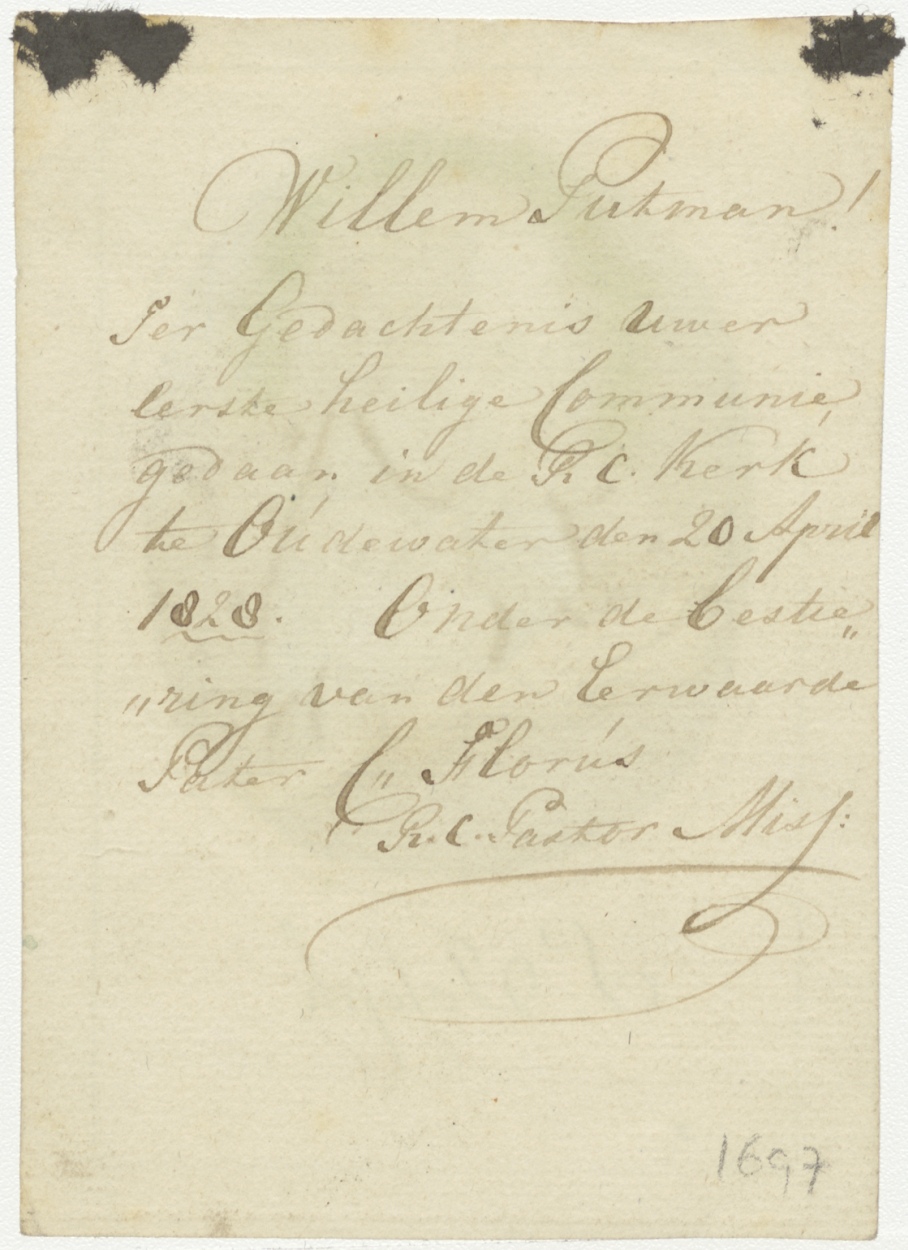 Willem Putman!
Ter Gedachtenis uwer
eerste heilige Communie,
gedaan in de R. C. Kerk
te Oúdewater den 20 April
1828. Onder de bestie„
„ring van den Eerwaarde
Pater C„ Florús
R. C. Pastor Miss:
1697